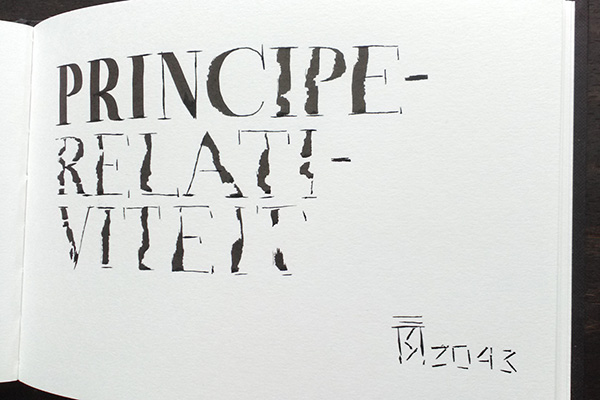 PRINCIPE-
RELATI-
VITEIT
2043